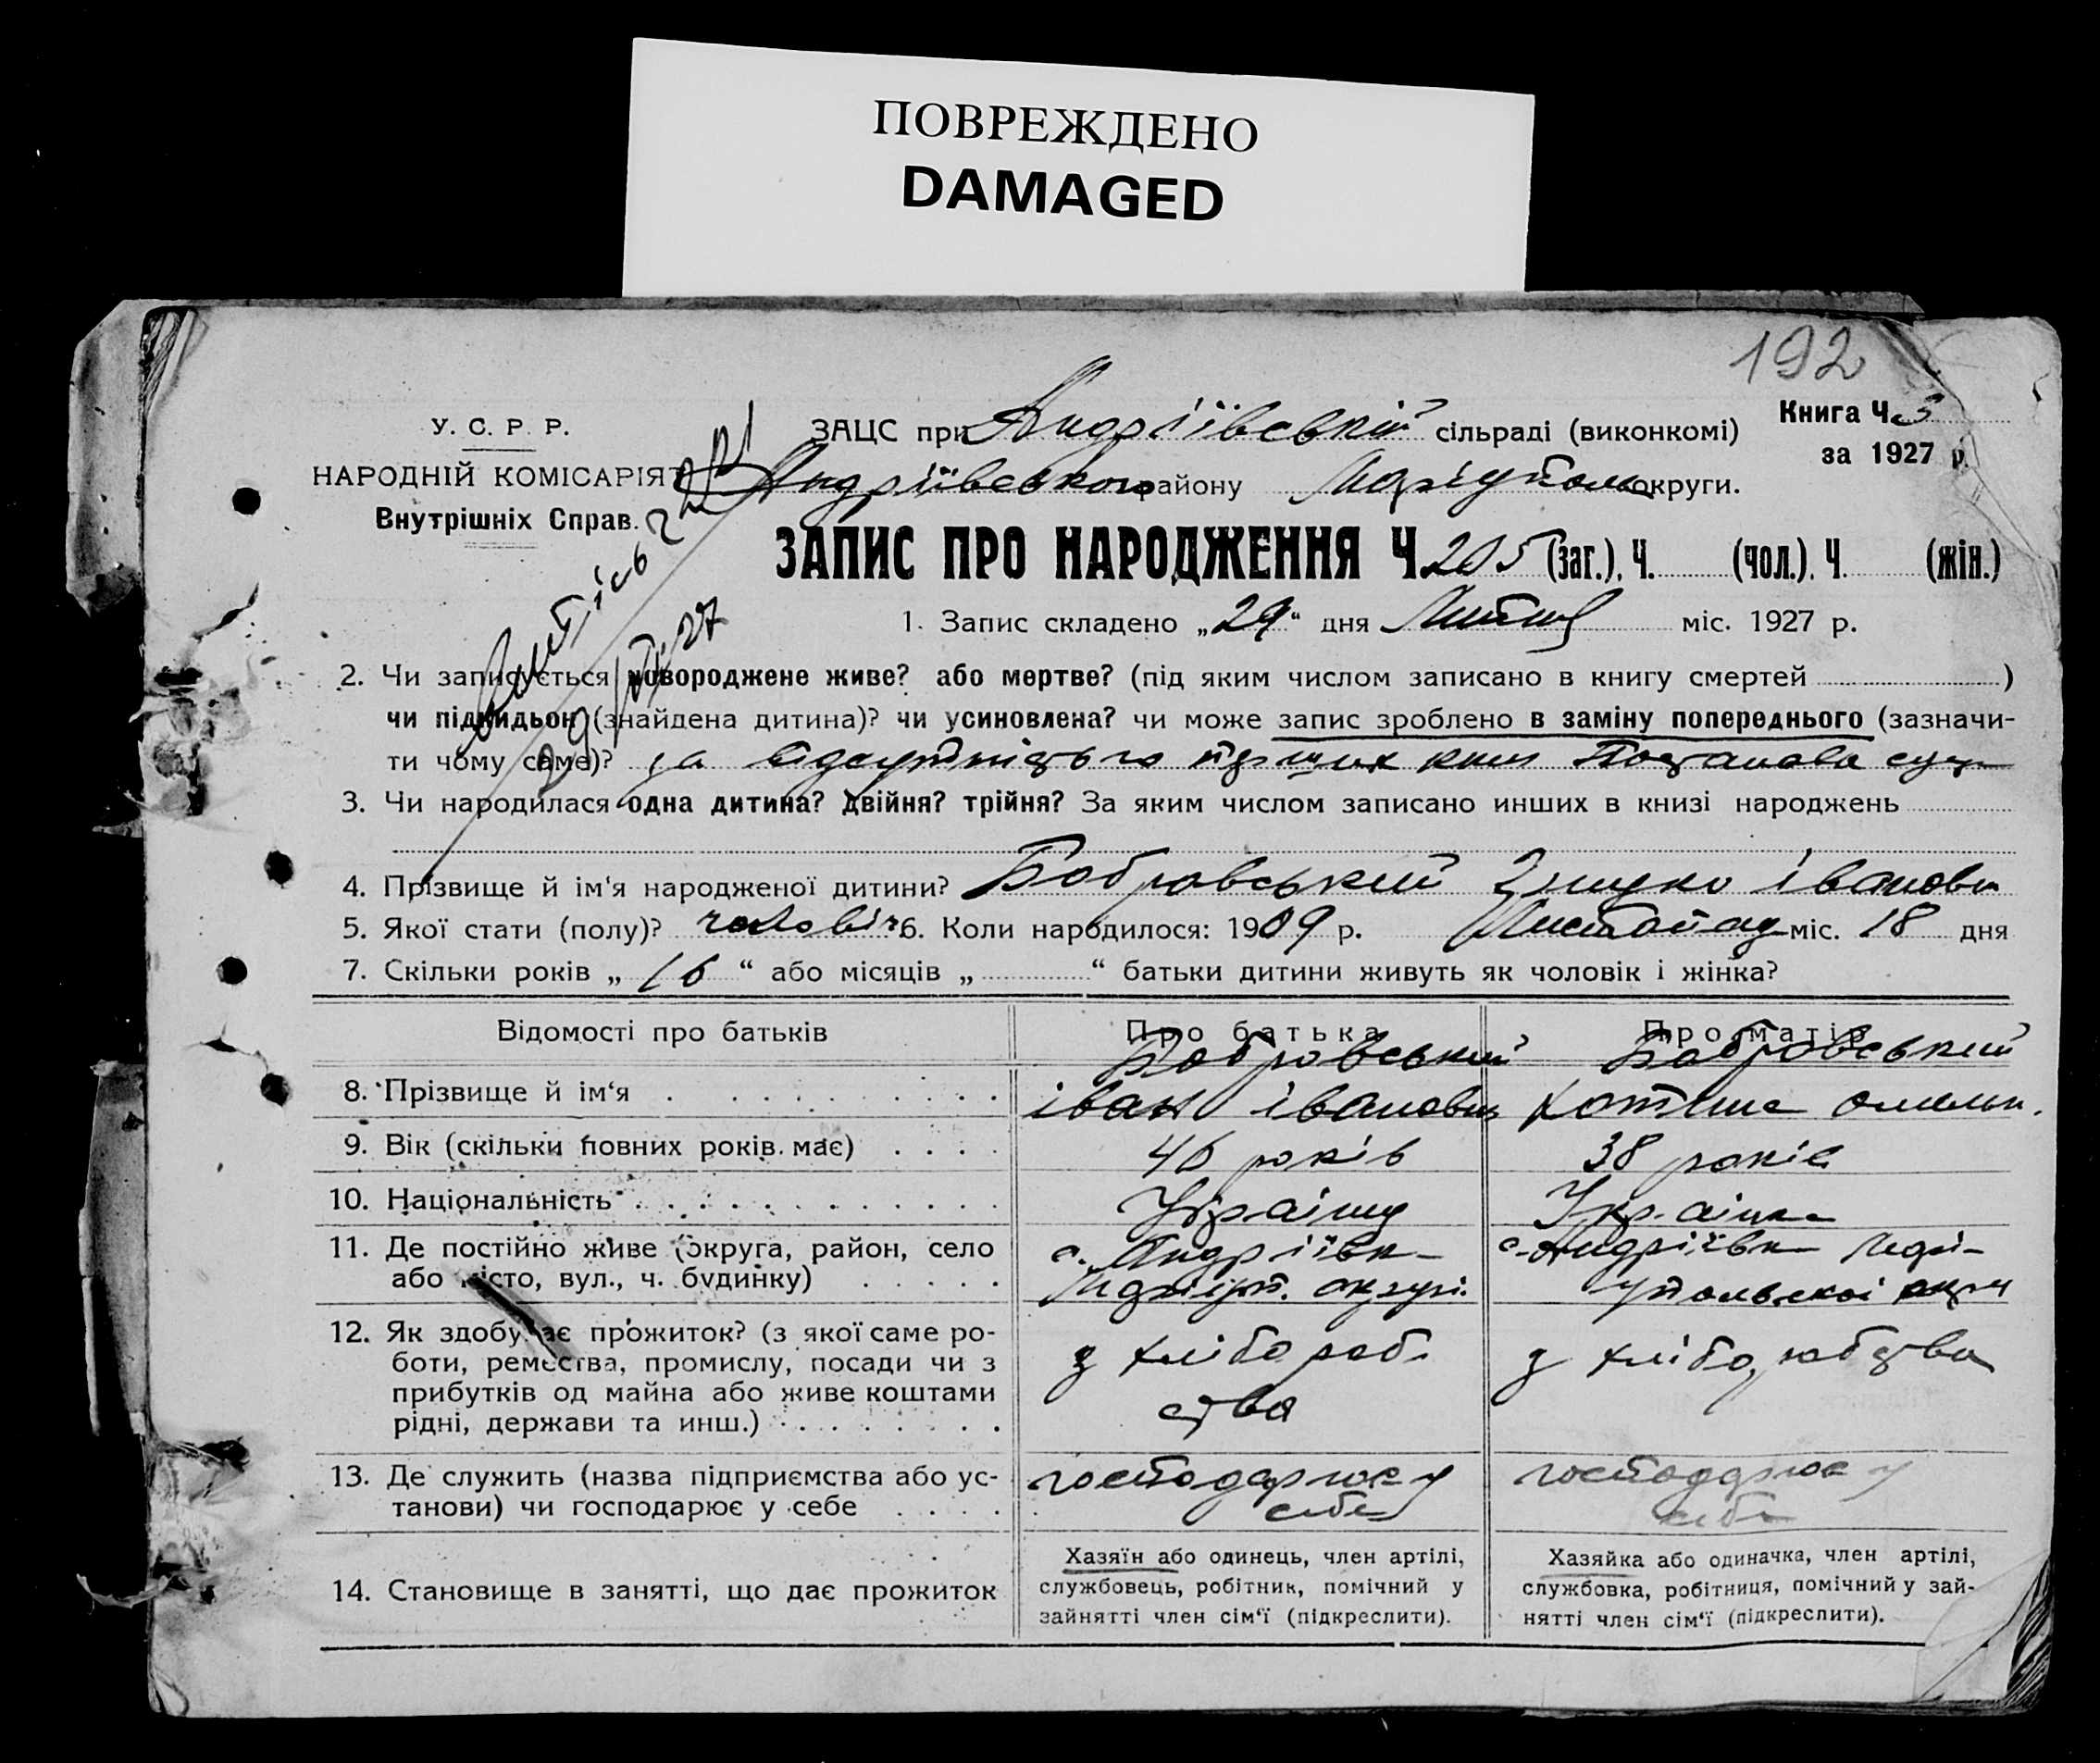 ПОВРЕЖДЕНО
DAMAGED
192
У. С. Р. Р.
НАРОДНІЙ КОМІСАРІЯТ
Внутрішніх Справ.
ЗАЦС при Андріївській сільраді (виконкомі)
Андріївського району Маріуполь округи.
Книга Ч. 3
за 1927 р.
ЗАПИС ПРО НАРОДЖЕННЯ Ч. 205 (заг.), Ч. (чол.), Ч. (жін.)
1. Запис складено „29“ дня Липня міс. 1927 р.
2. Чи записується новороджене живе? або мертве? (під яким числом записано в книгу смертей )
чи підкидьок (знайдена дитина)? чи усиновлена? чи може запис зроблено в заміну попереднього (зазначи-
ти чому саме)? за відсутністью книг Постанова
3. Чи народилася одна дитина? двійня? трійня? За яким числом записано инших в книзі народжень
4. Прізвище й ім‘я народженої дитини? Бобровський Іванови
5. Якої стати (полу)? чоловіч 6. Коли народилося: 1909 р. Листопад міс. 18 дня
7. Скільки років „16“ або місяців „ “ батьки дитини живуть як чоловік і жінка?
Відомості про батьків
Про батька
Про матір
8. Прізвище й ім‘я
Бобровський
іван іванович
Бобровський
9. Вік (скільки повних років має)
46 років
38 років
10. Національність
Українц
Українка
11. Де постійно живе (округа, район, село
або місто, вул., ч. будинку)
с. Андріївк
Маріуп. округі.
с. Андріївк Марі-
упольскоі
12. Як здобуває прожиток? (з якої саме ро-
боти, ремества, промислу, посади чи з
прибутків од майна або живе коштами
рідні, держави та инш.)
з хлібороб
ства
з хліборобства
13. Де служить (назва підприємства або ус-
танови) чи господарює у себе
господарює у
себе
господарює у
себе
14. Становище в занятті, що дає прожиток
Хазяїн або одинець, член артілі,
службовець, робітник, помічний у
зайнятті член сім‘ї (підкреслити).
Хазяйка або одиначка, член артілі,
службовка, робітниця, помічний у зай-
нятті член сім‘ї (підкреслити).